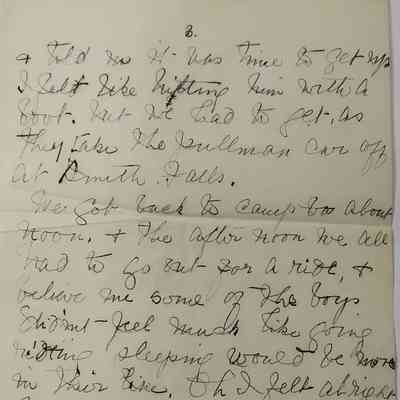 3.
& told us it was time to get up
I felt like hitting him with a
boot. but we had to get, as
They take the Pullman car off
at Smith Falls.
We got back to camp about
noon. & the after noon we all
had to go out for a ride, &
believe me some of the boys
didn't feel much like going
riding sleeping would be more
in their line. Oh I felt alright